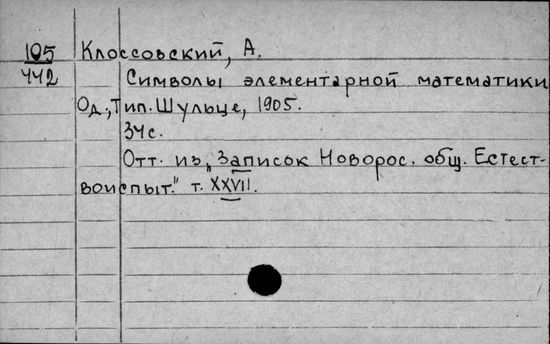 105 Клоссовский, А.
442 Символы элементарной математики
Од., Тип. Шульце, 1905.
34с.
Отт. из „Записок Новорос. общ. Естест-
воиспыт." т. XXVII.